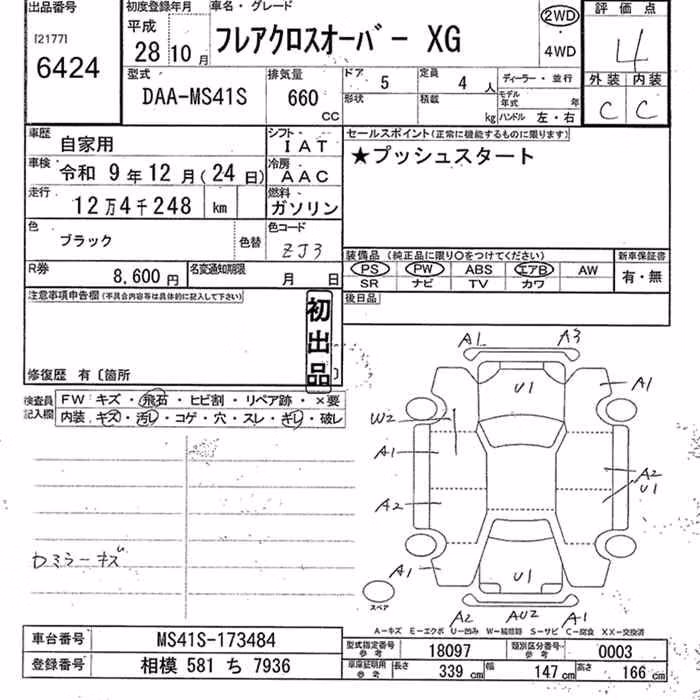 出品番号
[2177]
6424
初度登録年月
平成
28 10月
車名・グレード
フレアクロスオーバー XG
2WD
・
4WD
評価点
4
型式
DAA-MS41S
排気量
660
CC
ドア
5
定員
4 人
形状
積載
kg
ディーラー・並行
モデル年式 年
ハンドル 左・右
外装 内装
C C
車歴
自家用
シフト
IAT
車検
令和 9年12月(24日)
冷房
AAC
走行
12万4千248 km
燃料
ガソリン
色
ブラック
色替
色コード
ZJ3
R券
8,600円
名変通知期限
月 日
セールスポイント(正常に機能するものに限ります)
★プッシュスタート
装備品(純正品に限り〇をつけてください)
PS PW ABS エアB AW
SR ナビ TV カワ
新車保証書
有・無
後日品
注意事項申告欄(不具合内容等は具体的に記入して下さい)
初出品
修復歴 有〔箇所 〕
検査員記入欄
FW キズ・飛石・ヒビ割・リペア跡・×要
内装 キズ・汚レ・コゲ・穴・スレ・キレ・破レ
ウミラーキズ
A1 A3
U1
A1
W2
A1
A2
A2
U1
A1
U1
スペア
A2 AU2 A1
A-キズ E-エクボ U-凹み W-補修跡 S-サビ C-腐食 XX-交換済
車台番号
MS41S-173484
登録番号
相模 581 ち 7936
型式指定番号
参考
18097
類別区分番号
参考
0003
車庫証明用
参考
長さ
339 cm
幅
147 cm
高さ
166 cm